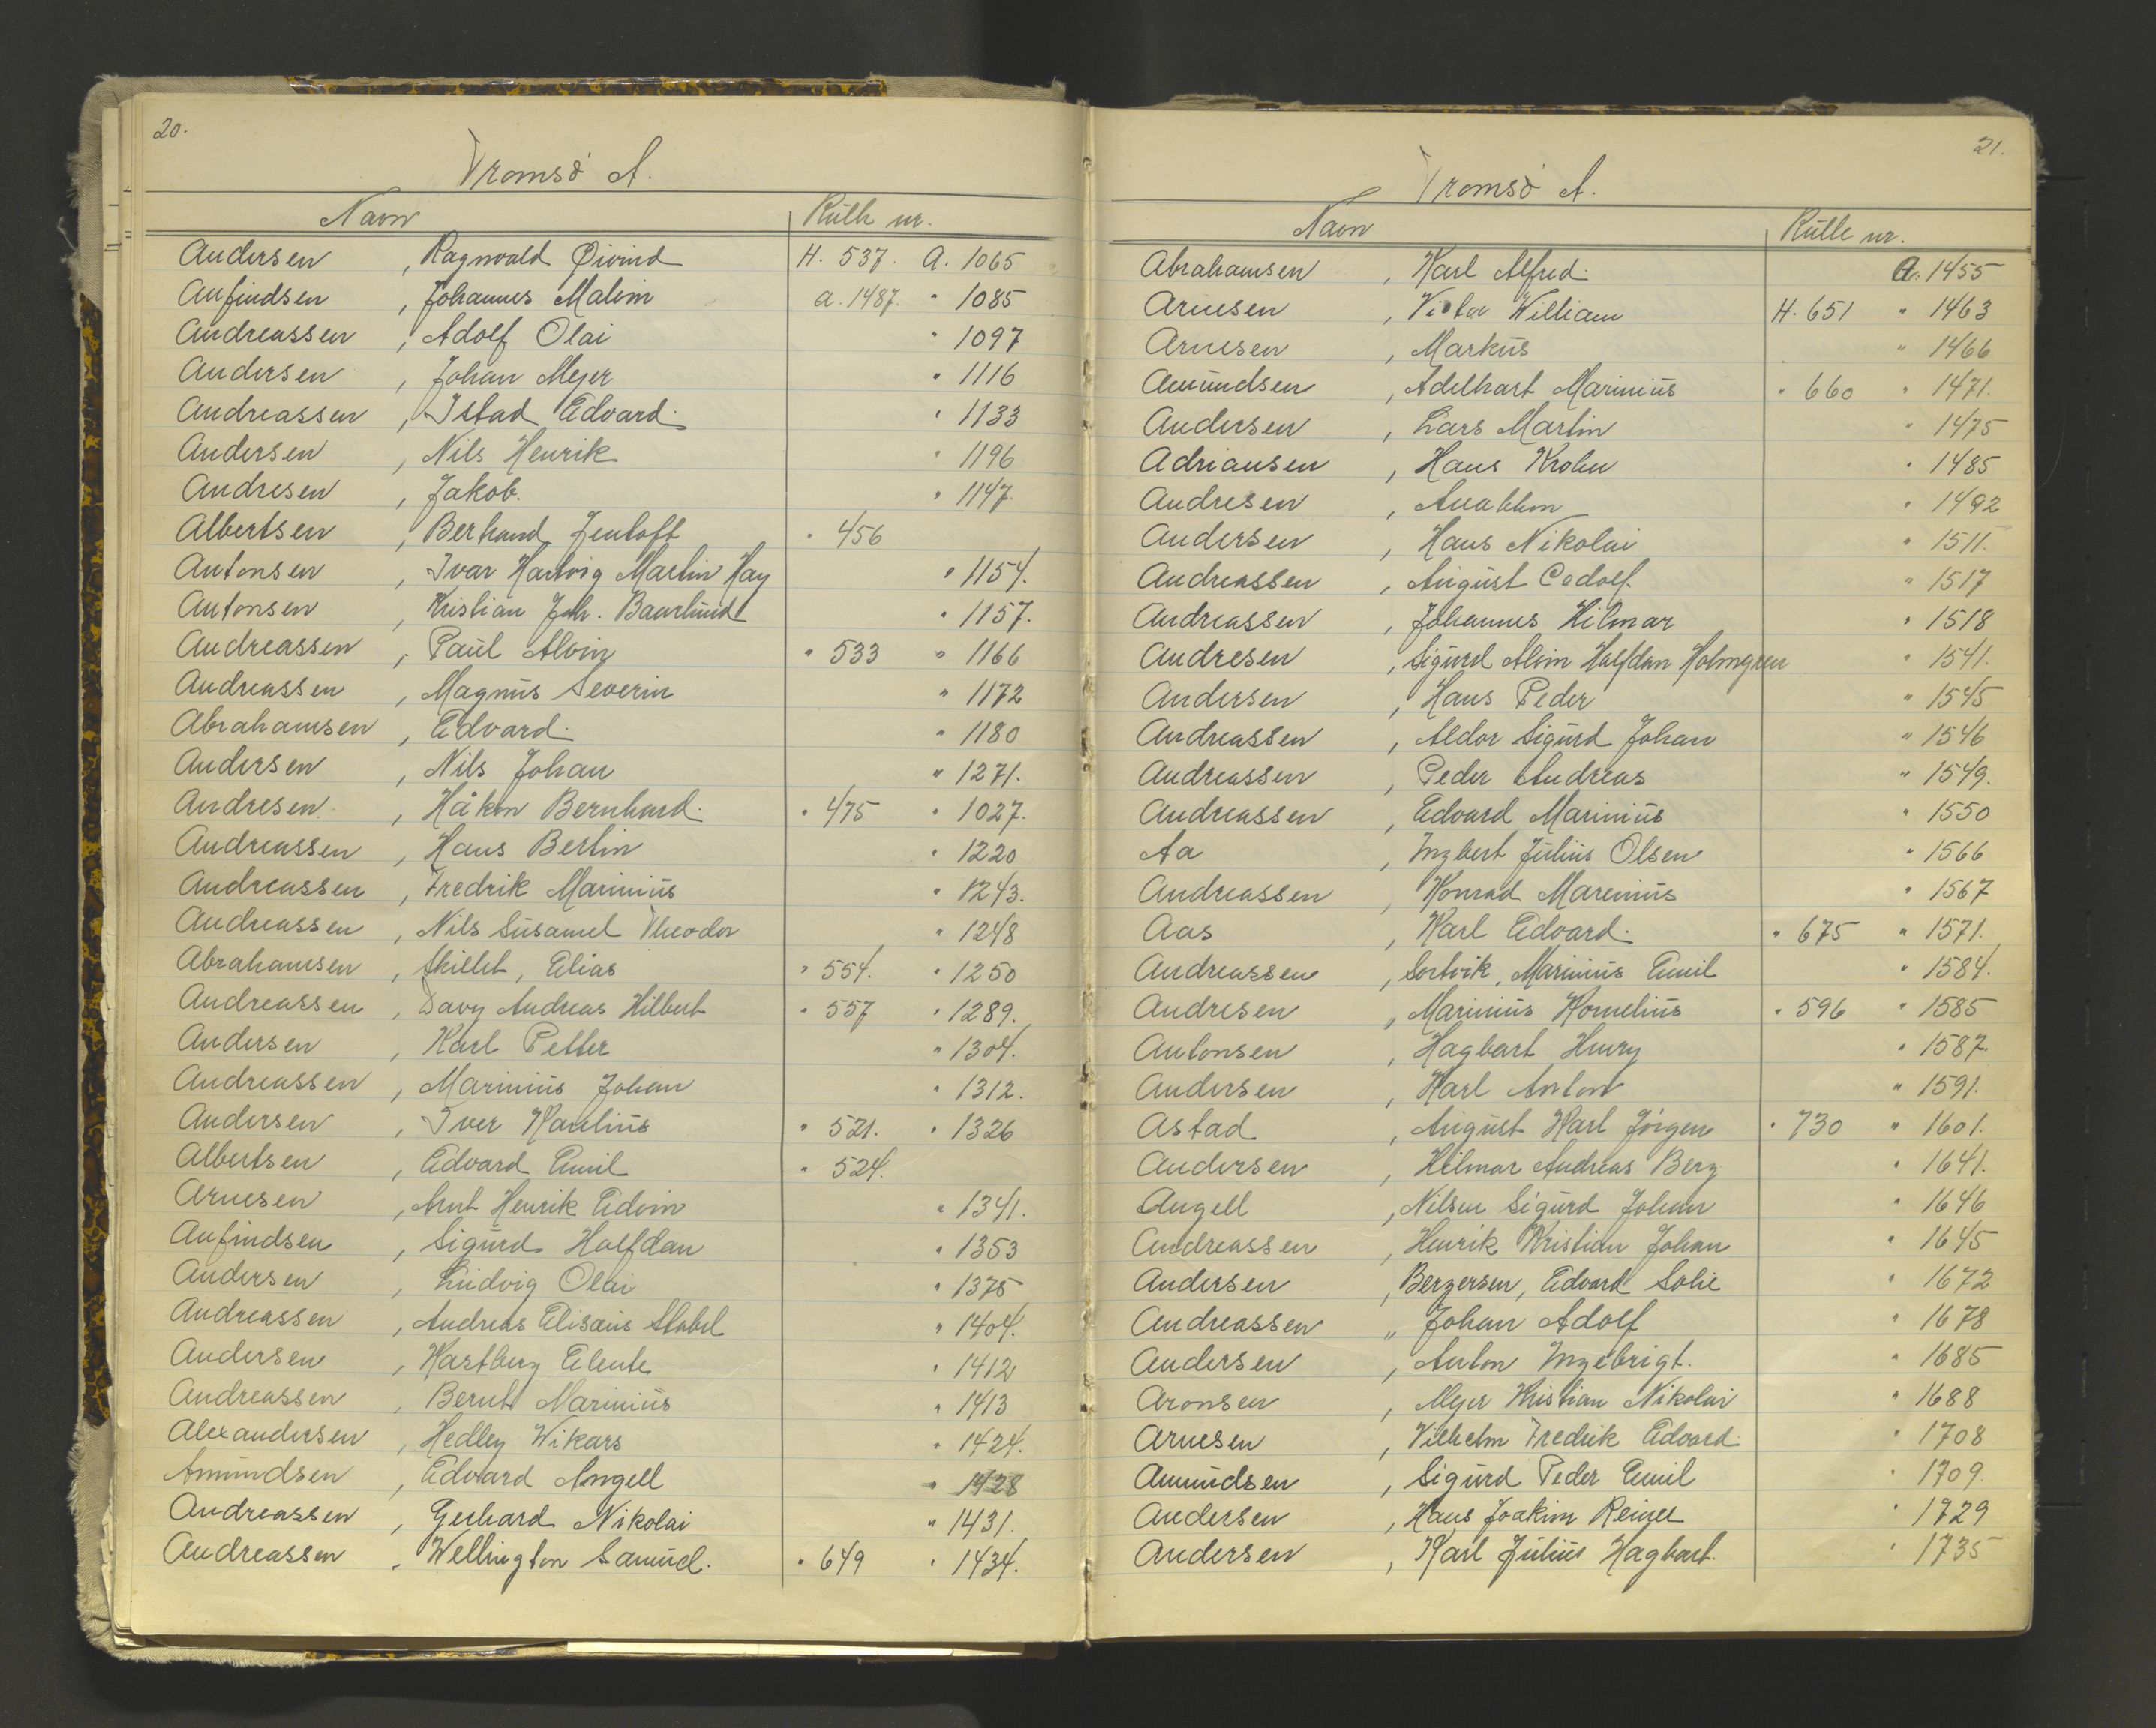 20.
Tromsø A.
Navn Rulle nr.
Andersen , Ragnvald Øivind H. 537. A. 1065
Anfindsen , Johannes Malvin a. 1487. " 1085
Andreassen , Adolf Olai " 1097
Andersen , Johan Meyer " 1116
Andreassen , Istad Edvard. " 1133
Andersen , Nils Henrik " 1196
Andresen , Jakob. " 1147.
Albertsen , Berhand Jentoft " 456
Antonsen , Ivar Hartvig Martin Hay " 1154.
Antonsen , Kristian Joh. Baarlund " 1157.
Andreassen , Paul Alvin " 533 " 1166
Andreassen , Magnus Severin " 1172
Abrahamsen , Edvard. " 1180
Andersen , Nils Johan " 1271.
Andresen. , Håkon Bernhard. " 475 " 1027.
Andreassen , Hans Bertin " 1220
Andreassen , Fredrik Marinius " 1243.
Andreassen , Nils Susamel Theodor " 1248
Abrahamsen , Skillet, Elias " 554. " 1250
Andreassen , Davy Andreas Hilbert " 557 " 1289.
Andersen , Karl Petter " 1304.
Andreassen , Marinius Johan " 1312.
Andersen , Iver Paulius " 521. " 1326
Albertsen , Edvard Emil " 524.
Arnesen , Arnt Henrik Edvin " 1341.
Anfindsen , Sigurd Halfdan " 1353
Andersen , Ludvig Olai " 1375
Andreassen , Andreas Elisæus Stabel " 1404.
Andersen , Hartberg " 1412
Andreassen , Bernt Marinius " 1413
Alexandersen , Hedley Wikars " 1424.
Amundsen , Edvard Angell " 1428
Andreassen , Gerhard Nikolai " 1431.
Andreassen , Wellington Samuel. " 649 " 1434.
21.
Tromsø A.
Navn Rulle nr.
Abrahamsen , Karl Alfred. A. 1455
Arnesen , Victor William H. 651 " 1463
Arnesen , Markus " 1466
Amundsen , Adelhart Marinius " 660 " 1471.
Andersen , Lars Martin " 1475
Adriansen , Hans Krohn " 1485
Andresen , " 1492
Andersen , Hans Nikolai " 1511.
Andreassen , August Codolf. " 1517
Andreassen , Johannes Hilmar " 1518
Andresen , Sigurd Alvin Halfdan Holmgren " 1541.
Andersen , Hans Peder " 1545
Andreassen , Aldor Sigurd Johan " 1546
Andreassen , Peder Andreas " 1549.
Andreassen , Edvard Marinius " 1550
Aa , Ingbert Julius Olsen " 1566
Andreassen , Konrad Marenius " 1567
Aas , Karl Edvard. " 675 " 1571.
Andreassen , Sortvik, Marinius Emil " 1584.
Andresen , Marinius Kornelius " 596 " 1585
Antonsen , Hagbart Henry " 1587.
Andersen , Karl Anton " 1591.
Astad , August Karl Jörgen " 730 " 1601.
Andersen , Hilmar Andreas Berg " 1641.
Angell , Nilsen Sigurd Johan " 1646
Andreassen , Henrik Kristian Johan " 1645
Andersen , Bergersen, Edvard Solie " 1672
Andreassen " Johan Adolf " 1678
Andersen , Anton Ingebrigt. " 1685
Aronsen , Meyer Kristian Nikolai " 1688
Arnesen , Vilhelm Fredrik Edvard. " 1708
Amundsen , Sigurd Peder Emil " 1709.
Andersen , Hans Joakim " 1729
Andersen , Karl Julius Hagbart. " 1735